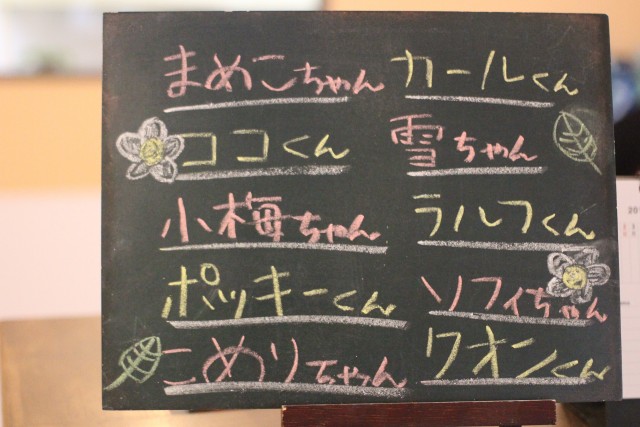 まめこちゃん
ココくん
小梅ちゃん
ポッキーくん
こめりちゃん
カールくん
雪ちゃん
ラルフくん
ソフィちゃん
クオンくん